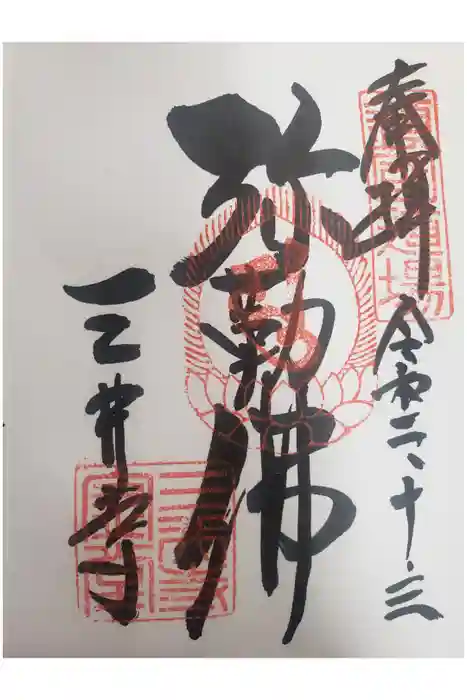 奉拝
令和二、十、三
弥勒佛
三井寺